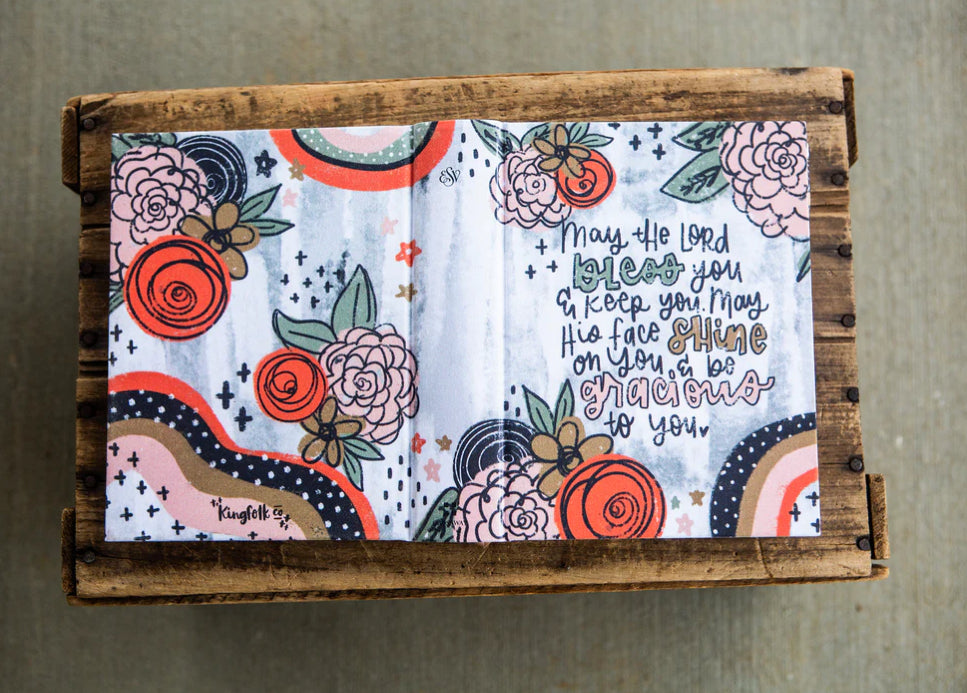 Kingfolk co
ESV
May the LORD
bless you
& keep you. May
His face shine
on you & be
gracious
to you